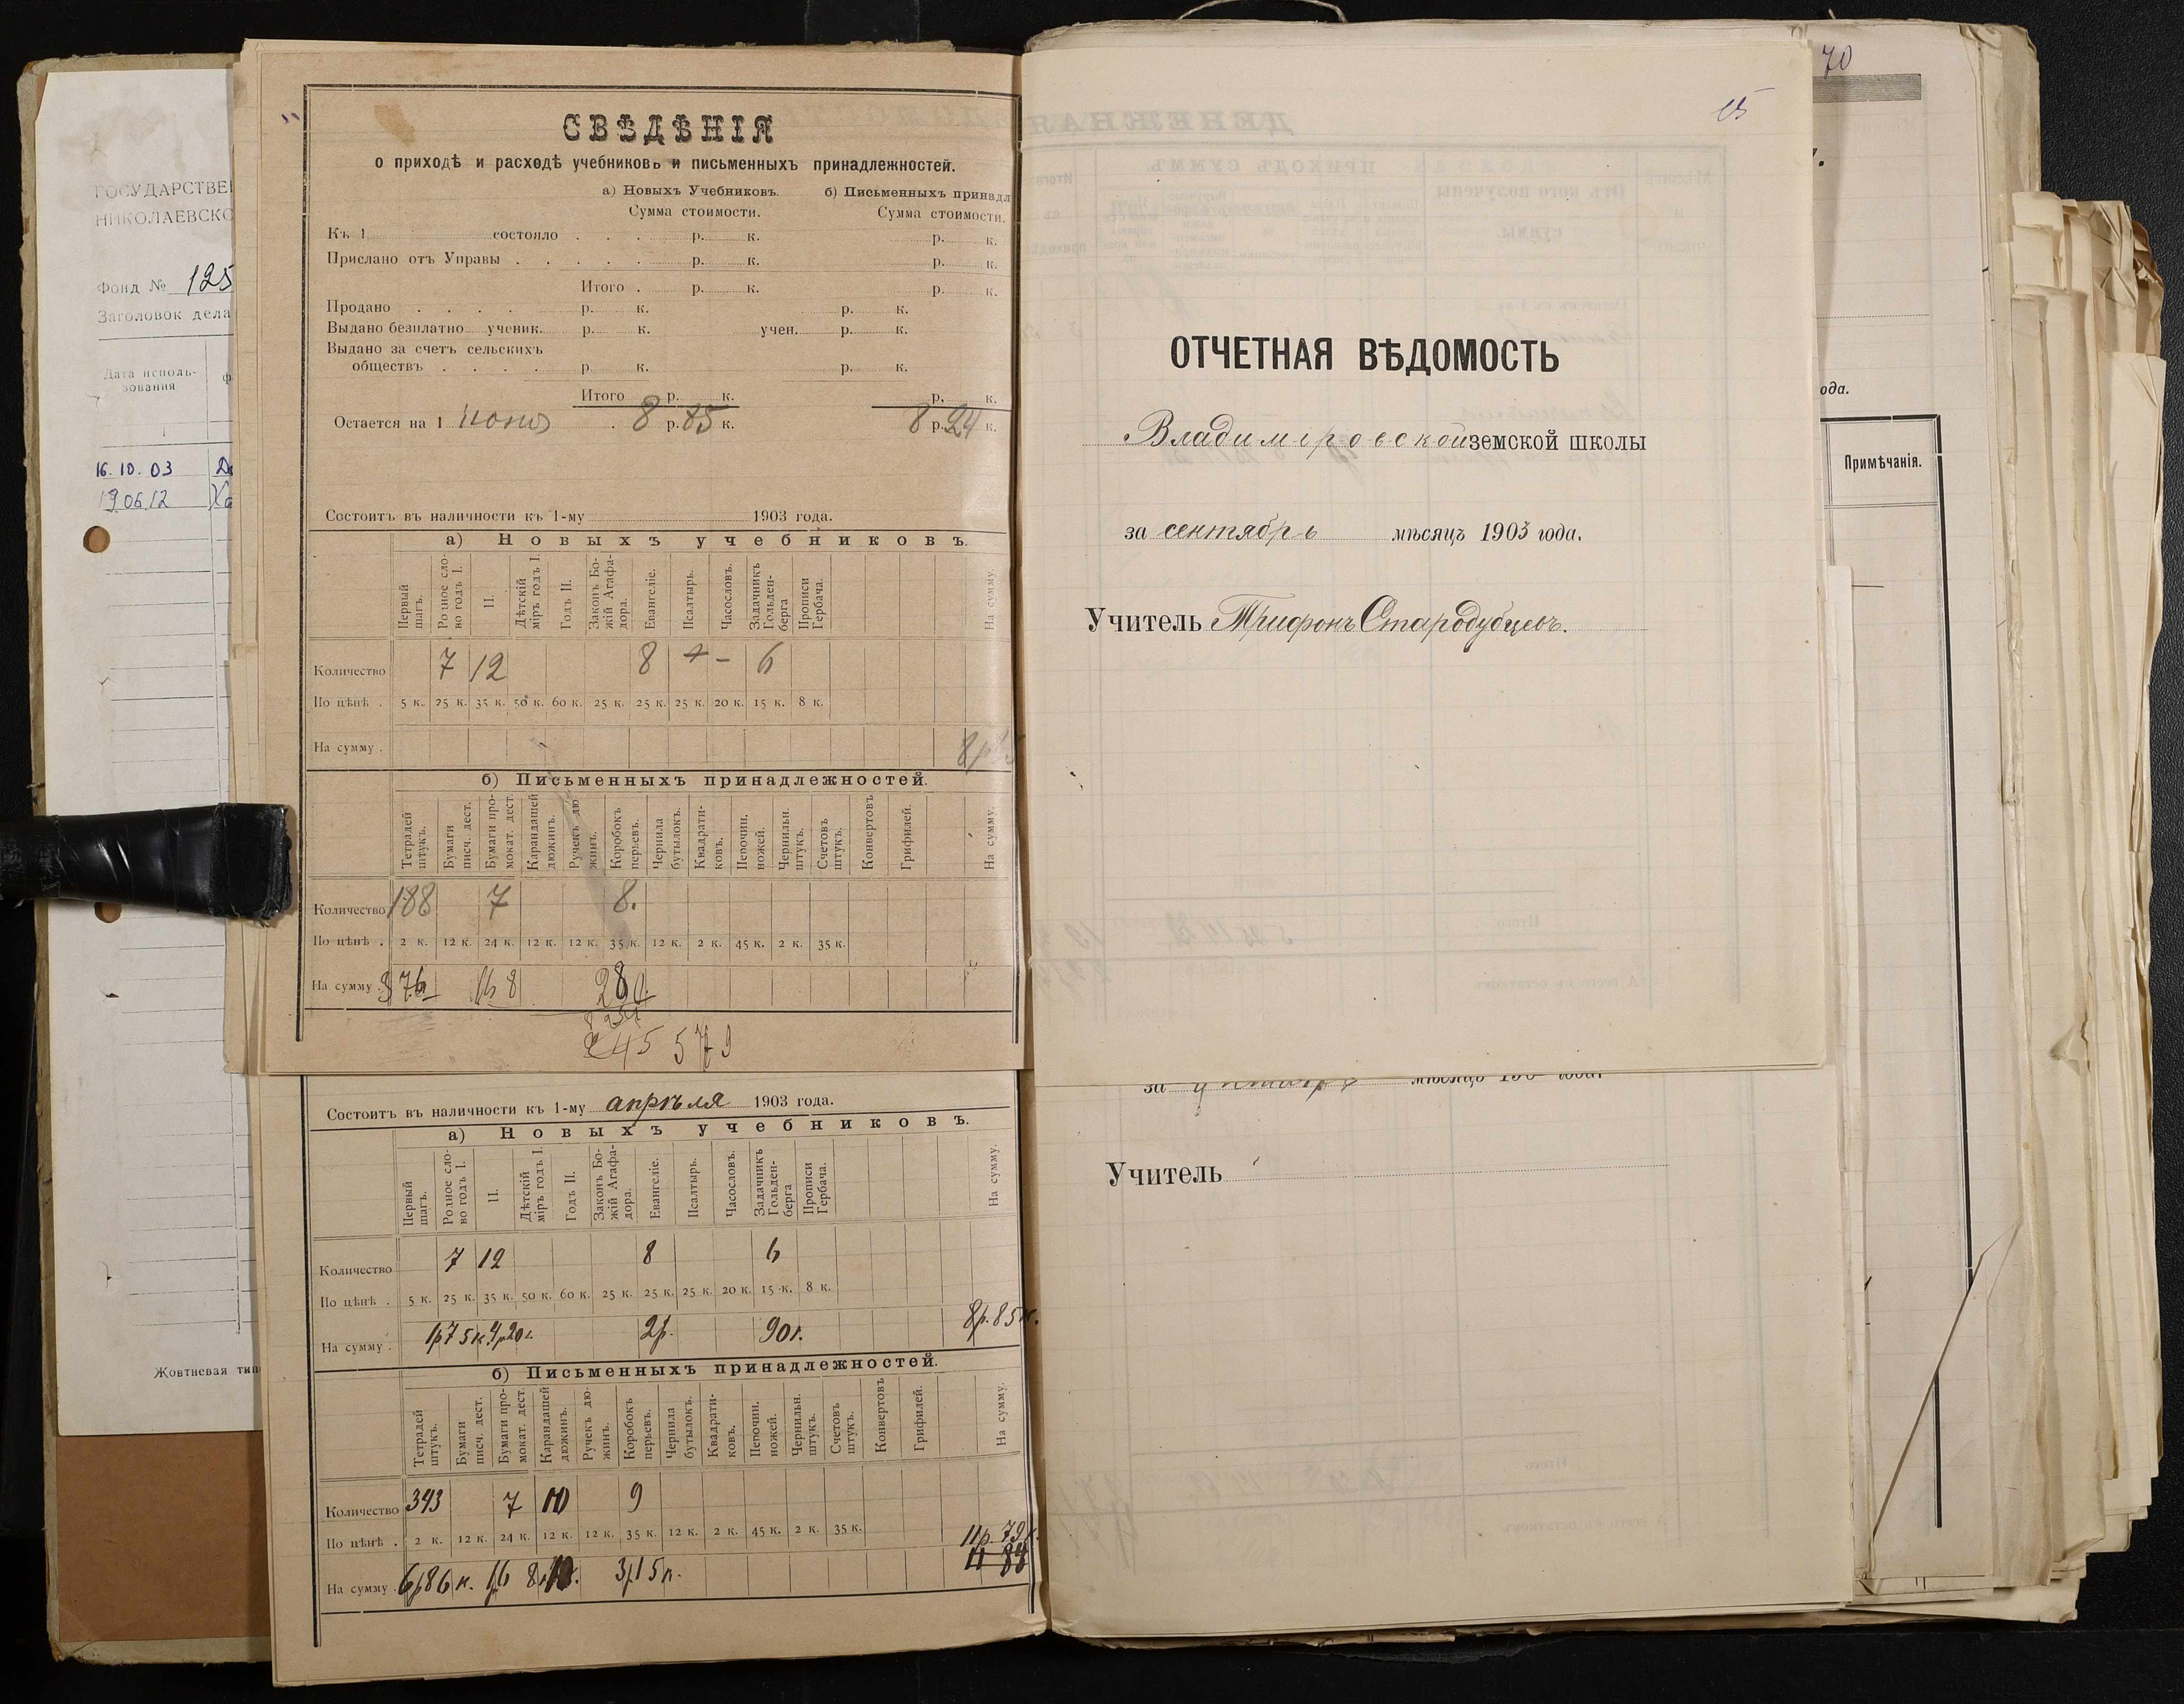 ГОСУДАРСТВЕ
НИКОЛАЕВСКО
Фонд № 125
Заголовок дела
Дата исполь-
зования
1
16.10.03
19.06.12
Жовтневая тип
СВѢДѢНІЯ
о приходѣ и расходѣ учебниковъ и письменныхъ принадлежностей.
а) Новыхъ Учебниковъ. б) Письменныхъ принадл
Сумма стоимости. Сумма стоимости.
Къ 1 состояло р. к. р. к.
Прислано отъ Управы р. к. р. к.
Итого р. к. р. к.
Продано р. к. р. к.
Выдано безплатно ученик. р. к. учен. р. к.
Выдано за счетъ сельскихъ
обществъ р. к. р. к.
Итого р. к. р. к.
Остается на 1 8 р. 85 к. 8 р. 24 к.
Состоитъ въ наличности къ 1-му 1903 года.
а) Новыхъ учебниковъ.
Первый шагъ. Родное сло- во годъ I. II. Дѣтскій міръ годъ I. Годъ II. Законъ Бо- жій Агафа- дора. Евангеліе. Псалтырь. Часословъ. Задачникъ Гольден- берга Прописи Гербача. На сумму.
Количество 7 12 8 6
По цѣнѣ . 5 к. 25 к. 35 к. 50 к. 60 к. 25 к. 25 к. 25 к. 20 к. 15 к. 8 к.
На сумму .
б) Письменныхъ принадлежностей.
Тетрадей штукъ. Бумаги писч. дест. Бумаги про- мокат. дест. Карандашей дюжинъ. Ручекъ дю жинъ. Коробокъ перьевъ. Чернила бутылокъ. Квадрати- ковъ. Перочин. ножей. Чернильн. штукъ. Счетовъ штукъ. Конвертовъ Грифилей. На сумму.
Количество 188 7 8.
По цѣнѣ . 2 к. 12 к. 24 к. 12 к. 12 к. 35 к. 12 к. 2 к. 45 к. 2 к. 35 к.
На сумму . 3 76 1 68 2 80
Состоитъ въ наличности къ 1-му апрѣля 1903 года.
а) Новыхъ учебниковъ.
Первый шагъ. Родное сло- во годъ I. II. Дѣтскій міръ годъ I. Годъ II. Законъ Бо- жій Агафа- дора. Евангеліе. Псалтырь. Часословъ. Задачникъ Гольден- берга Прописи Гербача. На сумму.
Количество 7 12 8 6
По цѣнѣ . 5 к. 25 к. 35 к. 50 к. 60 к. 25 к. 25 к. 25 к. 20 к. 15 к. 8 к.
На сумму . 1р 75к 4р 20к 2р. 90к. 8р. 85к.
б) Письменныхъ принадлежностей.
Тетрадей штукъ. Бумаги писч. дест. Бумаги про- мокат. дест. Карандашей дюжинъ. Ручекъ дю- жинъ. Коробокъ перьевъ. Чернила бутылокъ. Квадрати- ковъ. Перочин. ножей. Чернильн. штукъ. Счетовъ штукъ. Конвертовъ Грифилей. На сумму.
Количество 343 7 10 9
По цѣнѣ . 2 к. 12 к. 24 к. 12 к. 12 к. 35 к. 12 к. 2 к. 45 к. 2 к. 35 к. 11р. 79к.
На сумму . 6р 86 к. 1р 68 3р 15к.
15
ОТЧЕТНАЯ ВѢДОМОСТЬ
Владиміровской земской школы
за сентябрь мѣсяцъ 1903 года.
Учитель Трифонъ Стародубцевъ.
Учитель
70
ода.
Примѣчанія.